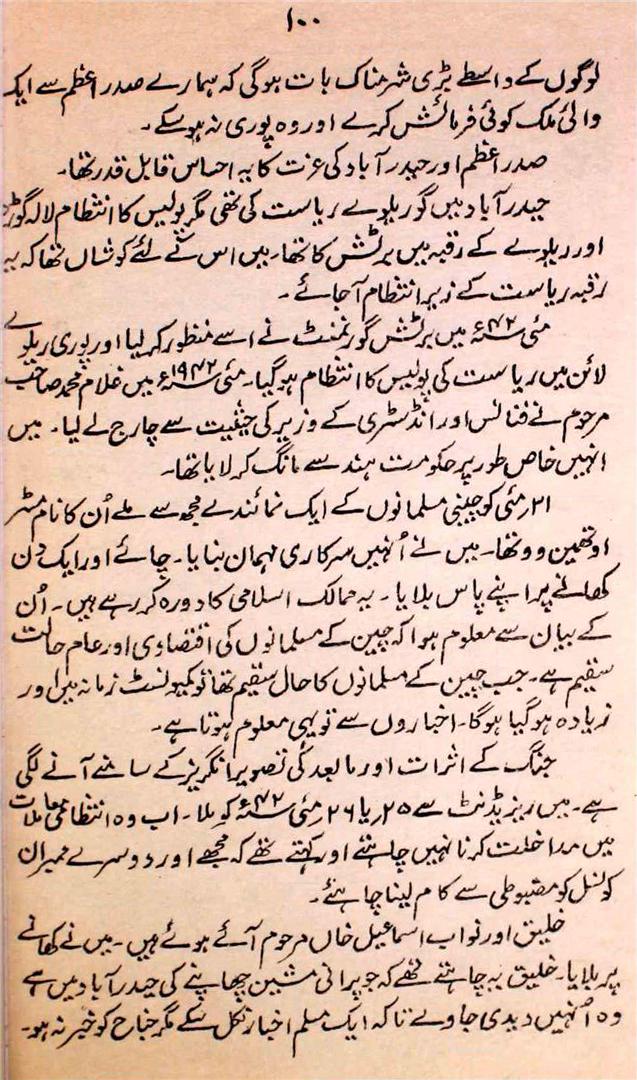 ۱۰۰
لوگوں کے واسطے بڑی شرمناک بات ہوگی کہ ہمارے صدر اعظم سے ایک
والئ ملک کوئی فرمائش کرے اور وہ پوری نہ ہوسکے۔
صدر اعظم اور حیدر آباد کی عزت کا یہ احساس قابل قدر تھا۔
حیدر آباد میں گو ریلوے ریاست کی تھی مگر پولیس کا انتظام لالہ گوڑہ
اور ریلوے کے رقبہ میں برٹش کا تھا۔ میں اس کے لئے کوشاں تھا کہ یہ
رقبہ ریاست کے زیر انتظام آجائے۔
مئی ۴۲ء میں برٹش گورنمنٹ نے اسے منظور کرلیا اور پوری ریلوے
لائن میں ریاست کی پولیس کا انتظام ہوگیا۔ مئی ۱۹۴۲ء میں غلام محمد صاحب
مرحوم نے فنانس اور انڈسٹری کے وزیر کی حیثیت سے چارج لے لیا۔ میں
انہیں خاص طور پر حکومت ہند سے مانگ کر لایا تھا۔
۲۱ر مئی کو چینی مسلمانوں کے ایک نمائندے مجھ سے ملے اُن کا نام مسٹر
اوتھمین وو تھا۔ میں نے اُنہیں سرکاری مہمان بنایا۔ چائے اور ایک دن
کھانے پر اپنے پاس بلایا۔ یہ ممالک اسلامی کا دورہ کر رہے ہیں۔ اُن
کے بیان سے معلوم ہوا کہ چین کے مسلمانوں کی اقتصادی اور عام حالت
سقیم ہے۔ جب چین کے مسلمانوں کا حال سقیم تھا تو کمیونسٹ زمانہ میں اور
زیادہ ہوگیا ہوگا۔ اخباروں سے تو یہی معلوم ہوتا ہے۔
جنگ کے اثرات اور مابعد کی تصویر انگریز کے سامنے آنے لگی
ہے۔ میں ریزیڈنٹ سے ۲۵ر یا ۲۶ر مئی ۴۲ء کو ملا۔ اب وہ انتظامی معاملات
میں مداخلت کرنا نہیں چاہتے اور کہتے تھے کہ مجھے اور دوسرے ممبران
کونسل کو مضبوطی سے کام لینا چاہئے۔
خلیق اور نواب اسماعیل خاں مرحوم آئے ہوئے ہیں۔ میں نے کھانے
پر بلایا۔ خلیق یہ چاہتے تھے کہ جو پرانی مشین چھاپنے کی حیدر آباد میں ہے
وہ اُنہیں دیدی جاوے تاکہ ایک مسلم اخبار نکل سکے مگر جناح کو خبر نہ ہو۔